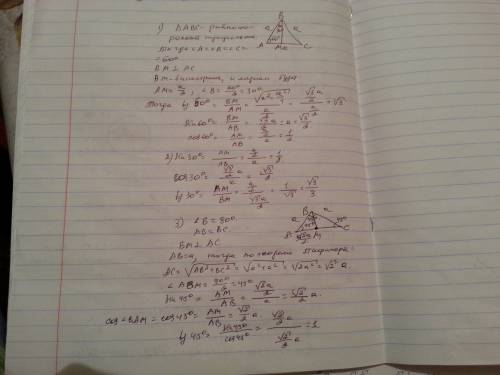 1) △ABC - равносто-
ронний треугольник,
= 60°
BM ⊥ AC
BM - биссектриса, и медиана
AM = a/2, ∠B = 60°/2 = 30°
Тогда tg 60° = BM/AM = √(a² - a²/4) / (a/2) = (√3a/2) / (a/2) = √3
sin 60° = BM/AB = (√3a/2) / a = √3/2
cos 60° = AM/AB = (a/2) / a = 1/2
2) sin 30° = AM/AB = (a/2) / a = 1/2
cos 30° = (√3a/2) / a = √3/2
tg 30° = AM/BM = (a/2) / (√3a/2) = 1/√3 = √3/3
3) ∠B = 90°
AB = BC
BM ⊥ AC
AB = a, тогда по теореме Пифагора:
AC = √(AB² + BC²) = √(a² + a²) = √(2a²) = √2 a
∠ABM = 90°/2 = 45°
sin 45° = AM/AB = (√2a/2) / a = √2/2
cos ∠BAM = cos 45° = AM/AB = √2/2
tg 45° = sin 45°/cos 45° = (√2/2) / (√2/2) = 1